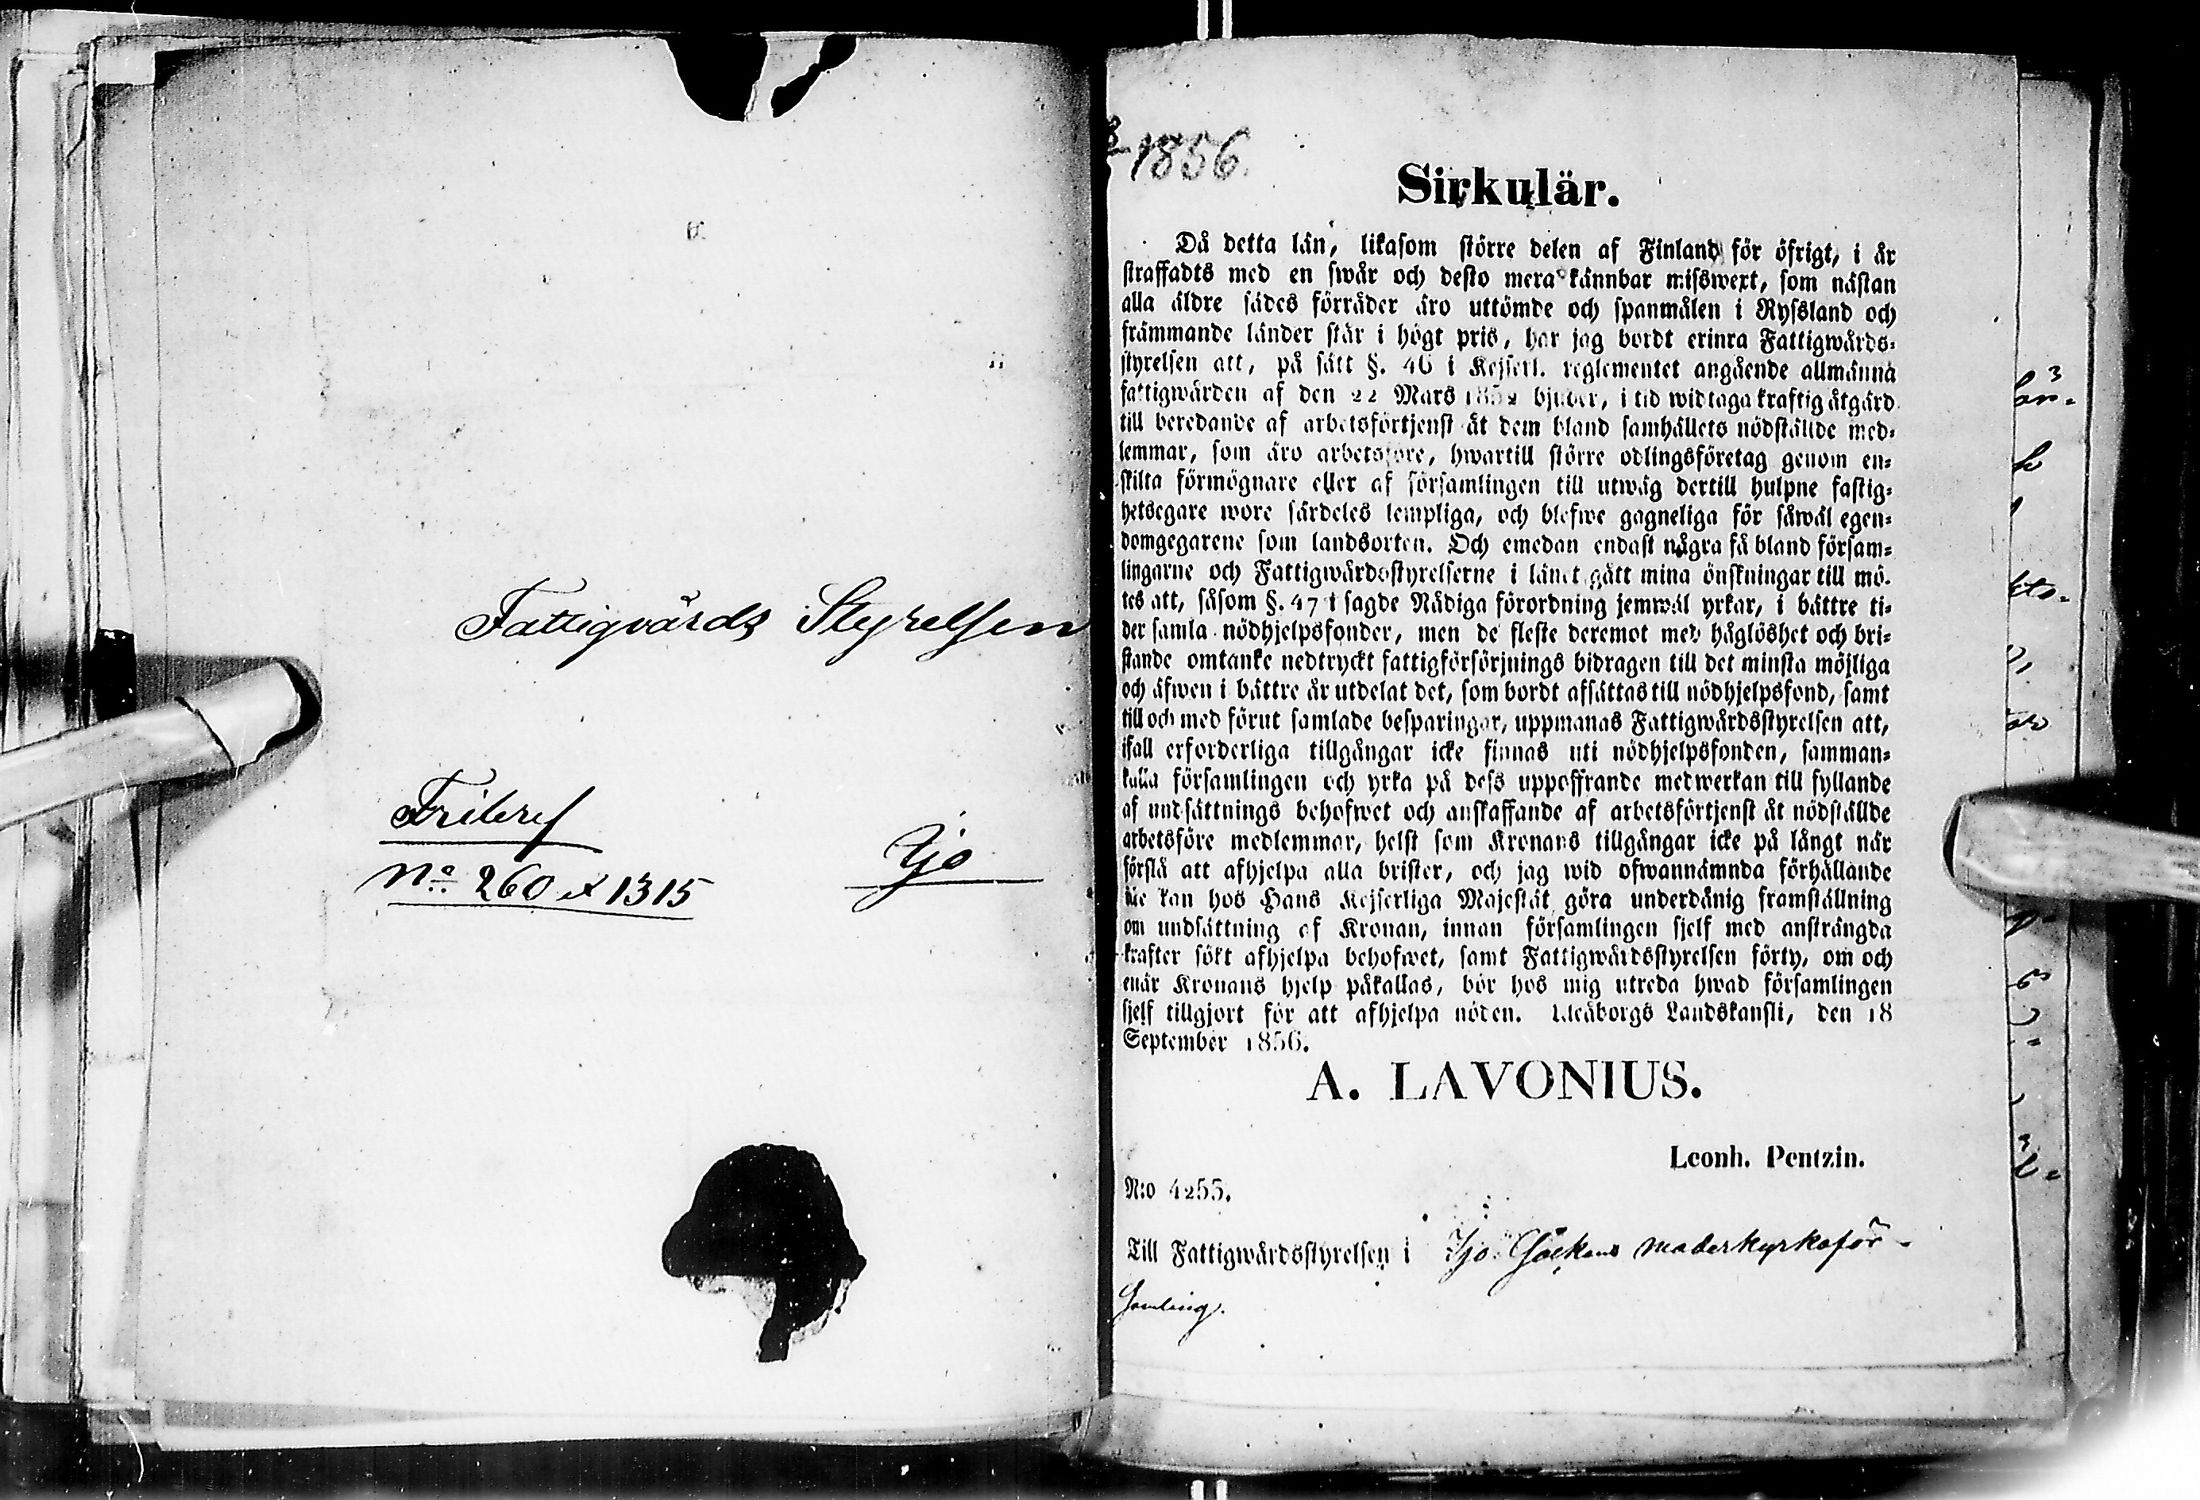 Fattigvårds Styrelsen
Fribref
No 260 et 1315
Ijo
1856.
Sirkulär.
Då detta län, likasom större delen af Finland för öfrigt, i år
straffadts med en swår och desto mera kännbar misswext, som nästan
alla äldre sädes förråder äro uttömde och spanmålen i Ryssland och
främmande länder står i högt pris, har jag bordt erinra Fattigwårds-
styrelsen att, på sätt §. 46 i Kejserl. reglementet angående allmänna
fattigwården af den 22 Mars 1852 bjuder, i tid widtaga kraftig åtgärd
till beredande af arbetsförtjenst åt dem bland samhällets nödställde med-
lemmar, som äro arbetsföre, hwartill större odlingsföretag genom en-
skilta förmögnare eller af församlingen till utwäg dertill hulpne fastig-
hetsegare wore särdeles lempliga, och blefwe gagneliga för såwäl egen-
domgegarene som landsorten. Och emedan endast några få bland försam-
lingarne och Fattigwårdsstyrelserne i länet gått mina önskningar till mö-
tes att, såsom §. 47 i sagde Nådiga förordning jemwäl yrkar, i bättre ti-
der samla nödhjelpsfonder, men de fleste deremot med håglöshet och bri-
stande omtanke nedtryckt fattigförsörjnings bidragen till det minsta möjliga
och äfwen i bättre år utdelat det, som bordt afsättas till nödhjelpsfond, samt
till och med förut samlade besparingar, uppmanas Fattigwårdsstyrelsen att,
ifall erforderliga tillgångar icke finnas uti nödhjelpsfonden, samman-
kalla församlingen och yrka på dess uppoffrande medwerkan till fyllande
af undsättnings behofwet och anskaffande af arbetsförtjenst åt nödställde
arbetsföre medlemmar, helst som Kronans tillgångar icke på långt när
förslå att afhjelpa alla brister, och jag wid ofwannämnda förhållande
icke kan hos Hans Kejserliga Majestät göra underdånig framställning
om undsättning af Kronan, innan församlingen sjelf med ansträngda
krafter sökt afhjelpa behofwet, samt Fattigwårdsstyrelsen förty, om och
enär Kronans hjelp påkallas, bör hos mig utreda hwad församlingen
sjelf tillgjort för att afhjelpa nöden. Uleåborgs Landskansli, den 18
September 1856.
A. LAVONIUS.
Leonh. Pentzin.
N:o 4255.
Till Fattigwårdsstyrelsen i Ijo Sockens moderkyrkoför-
samling.